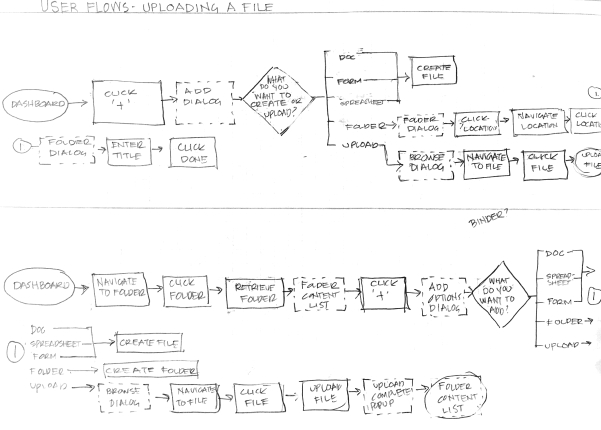 USER FLOWS - UPLOADING A FILE
DASHBOARD
CLICK
'+'
ADD
DIALOG
WHAT
DO YOU
WANT TO
CREATE OR
UPLOAD?
DOC
FORM
SPREADSHEET
CREATE
FILE
FOLDER
FOLDER
DIALOG
CLICK
LOCATION
NAVIGATE
LOCATION
CLICK
LOCATI
1
UPLOAD
BROWSE
DIALOG
NAVIGATE
TO FILE
CLICK
FILE
UPLOA
FILE
1
FOLDER
DIALOG
ENTER
TITLE
CLICK
DONE
BINDER?
DASHBOARD
NAVIGATE
TO FOLDER
CLICK
FOLDER
RETRIEVE
FOLDER
FOLDER
CONTENT
LIST
CLICK
'+'
ADD
OPTIONS
DIALOG
WHAT
DO YOU
WANT TO
ADD?
DOC
SPREAD-
SHEET
FORM
FOLDER
UPLOAD
1
1
DOC
SPREADSHEET
FORM
CREATE FILE
FOLDER
CREATE FOLDER
UPLOAD
BROWSE
DIALOG
NAVIGATE
TO FILE
CLICK
FILE
UPLOAD
FILE
UPLOAD
COMPLETE
POPUP
FOLDER
CONTENT
LIST